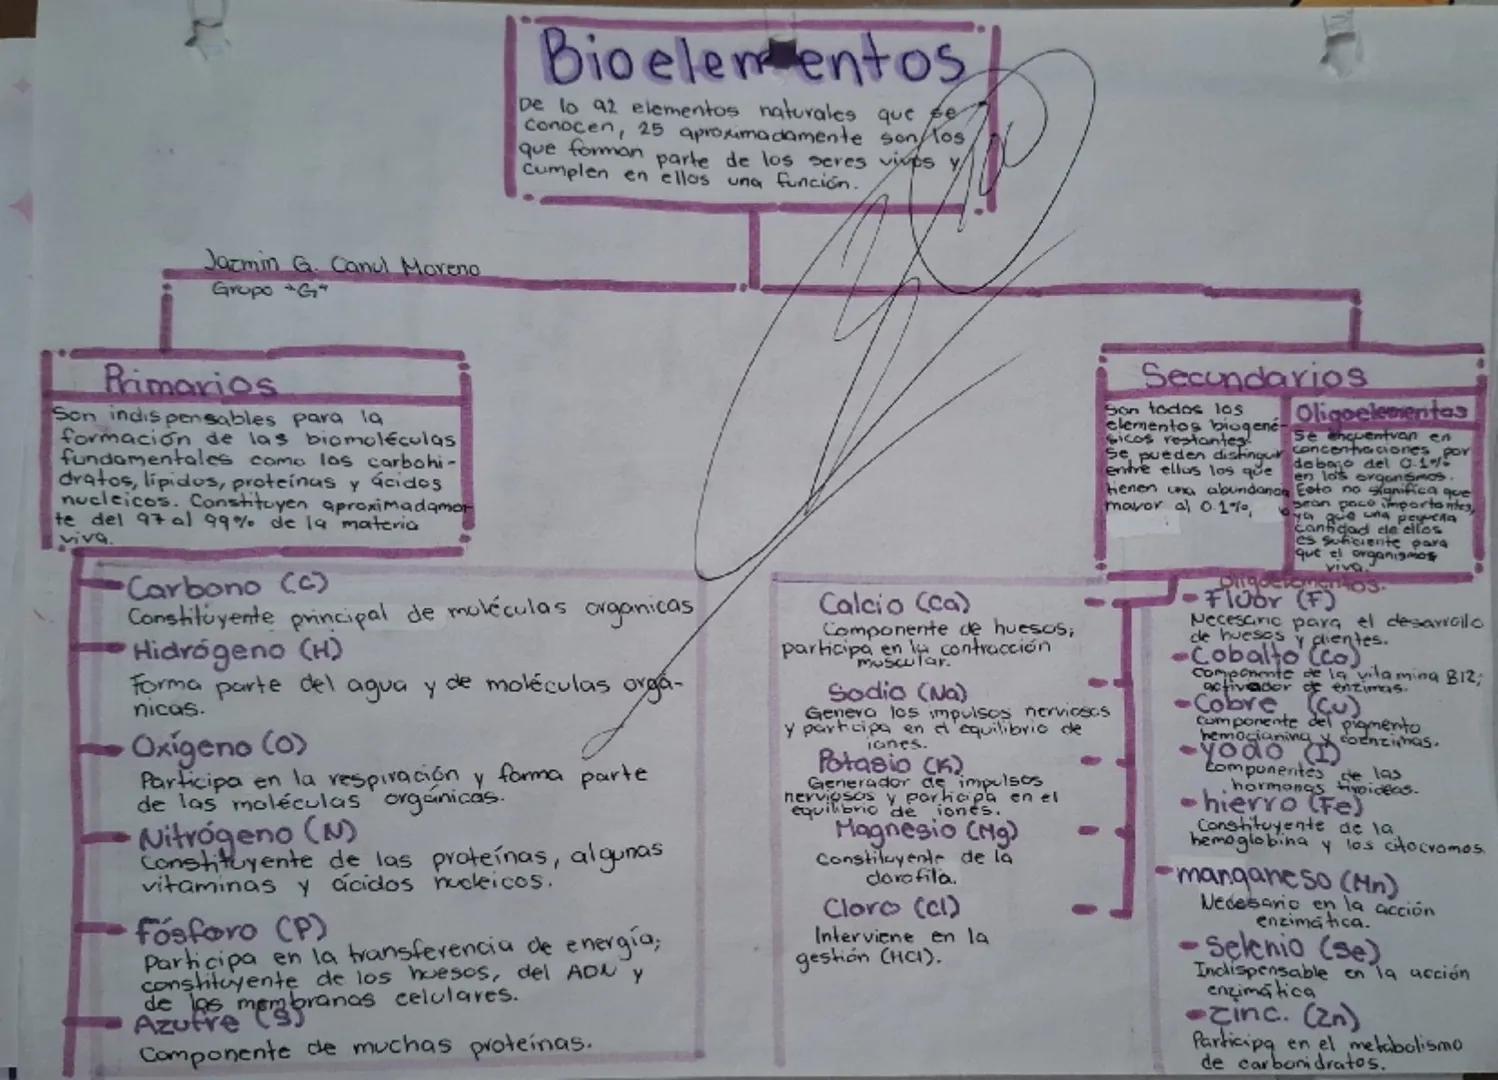 Bioelementos
De lo 92 elementos naturales que se
conocen, 25 aproximadamente son los
que forman parte de los seres vivos y
cumplen en ellos una función.
Jazmin G. Canul Moreno
Grupo "G"
Primarios
Son indispensables para la
formación de las biomoléculas
fundamentales como los carbohi-
dratos, lípidos, proteínas y ácidos
nucleicos. Constituyen aproximadamen-
te del 97 al 99% de la materia
viva.
Carbono (C)
Constituyente principal de moléculas organicas
Hidrógeno (H)
Forma parte del agua y de moléculas orgá-
nicas.
Oxígeno (O)
Participa en la respiración y forma parte
de las moléculas orgánicas.
Nitrógeno (N)
Constituyente de las proteínas, algunas
vitaminas y ácidos nucleicos.
Fósforo (P)
Participa en la transferencia de energía;
constituyente de los huesos, del ADN y
de las membranas celulares.
Azufre (S)
Componente de muchas proteínas.
Secundarios
Son todos los
elementos biogené-
sicos restantes.
Se pueden distinguir
entre ellos los que
tienen una abundancia
mayor al 0.1%,
Oligoelementos
Se encuentran en
concentraciones por
debajo del 0.1%
en los organismos.
Esto no significa que
sean poco importantes,
ya que una pequeña
cantidad de ellos
es suficiente para
que el organismos
viva.
Calcio (Ca)
Componente de huesos;
participa en la contracción
muscular.
Sodio (Na)
Genera los impulsos nerviosos
y participa en el equilibrio de
iones.
Potasio (K)
Generador de impulsos
nerviosos y participa en el
equilibrio de iones.
Magnesio (Mg)
Constituyente de la
clorofila.
Cloro (Cl)
Interviene en la
gestión (HCl).
Oligoelementos.
Flúor (F)
Necesario para el desarrollo
de huesos y dientes.
Cobalto (Co)
Componente de la vitamina B12;
activador de enzimas.
Cobre (Cu)
Componente del pigmento
hemocianina y coenzimas.
Yodo (I)
Componentes de las
hormonas tiroideas.
hierro (Fe)
Constituyente de la
hemoglobina y los citocromos
manganeso (Mn)
Necesario en la acción
enzimática.
Selenio (Se)
Indispensable en la acción
enzimática
Zinc. (Zn)
Participa en el metabolismo
de carbonidratos.